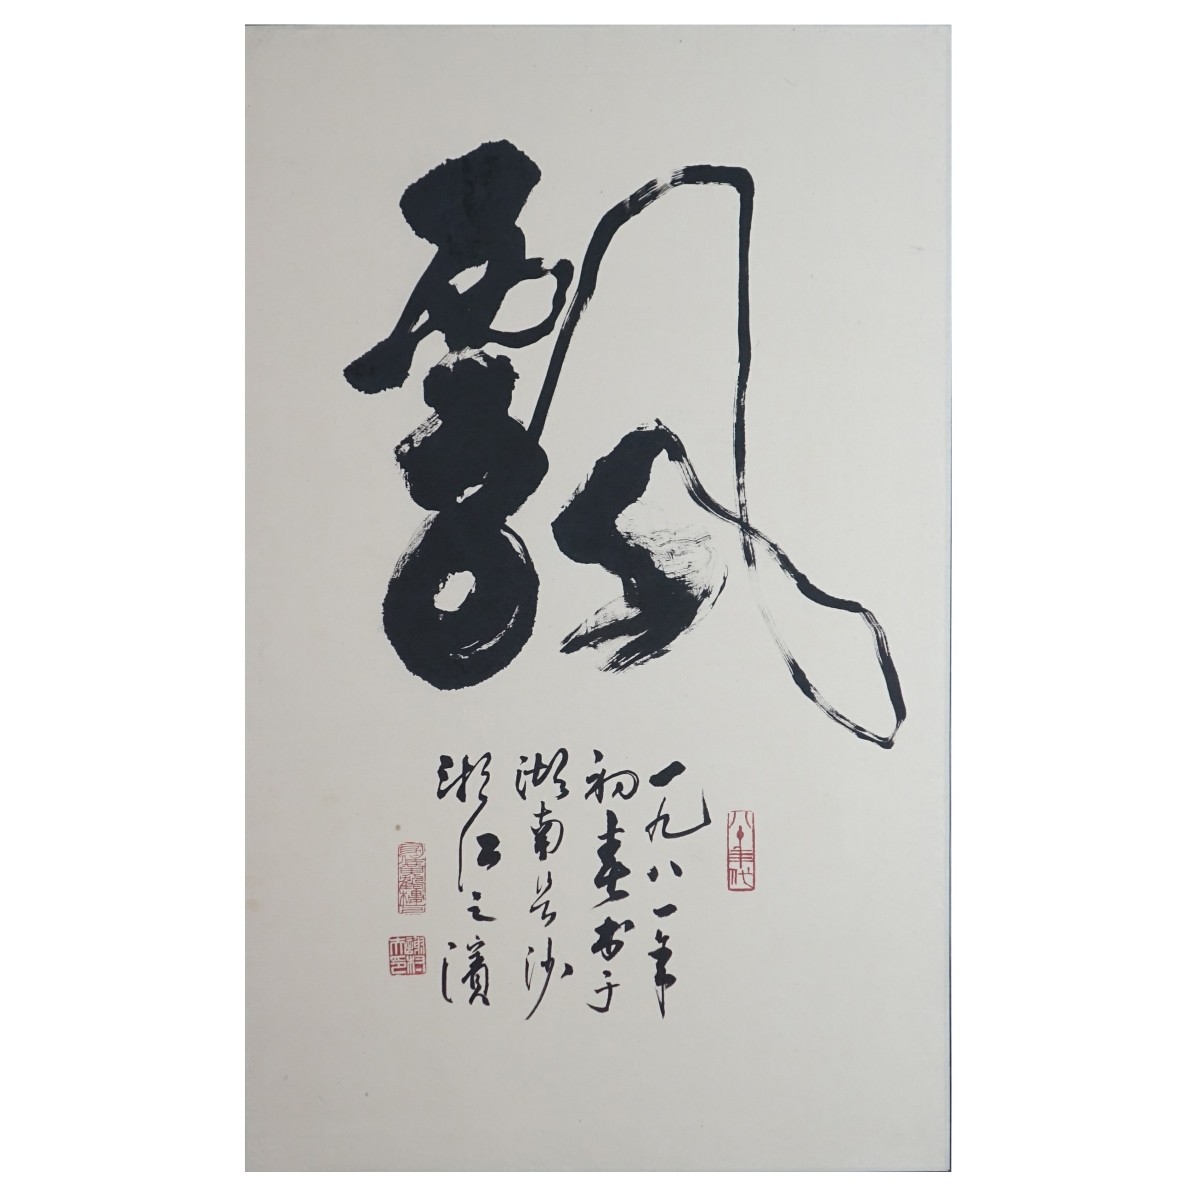 飘
一九八一年
初春书于
湖南长沙
湘江之滨
八十年代